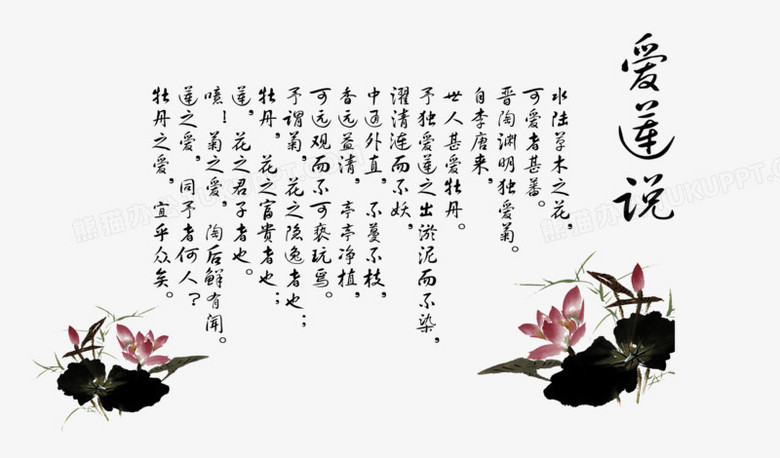 爱莲说
水陆草木之花，
可爱者甚蕃。
晋陶渊明独爱菊。
自李唐来，
世人甚爱牡丹。
予独爱莲之出淤泥而不染，
濯清涟而不妖，
中通外直，不蔓不枝，
香远益清，亭亭净植，
可远观而不可亵玩焉。
予谓菊，花之隐逸者也；
牡丹，花之富贵者也；
莲，花之君子者也。
噫！菊之爱，陶后鲜有闻。
莲之爱，同予者何人？
牡丹之爱，宜乎众矣。